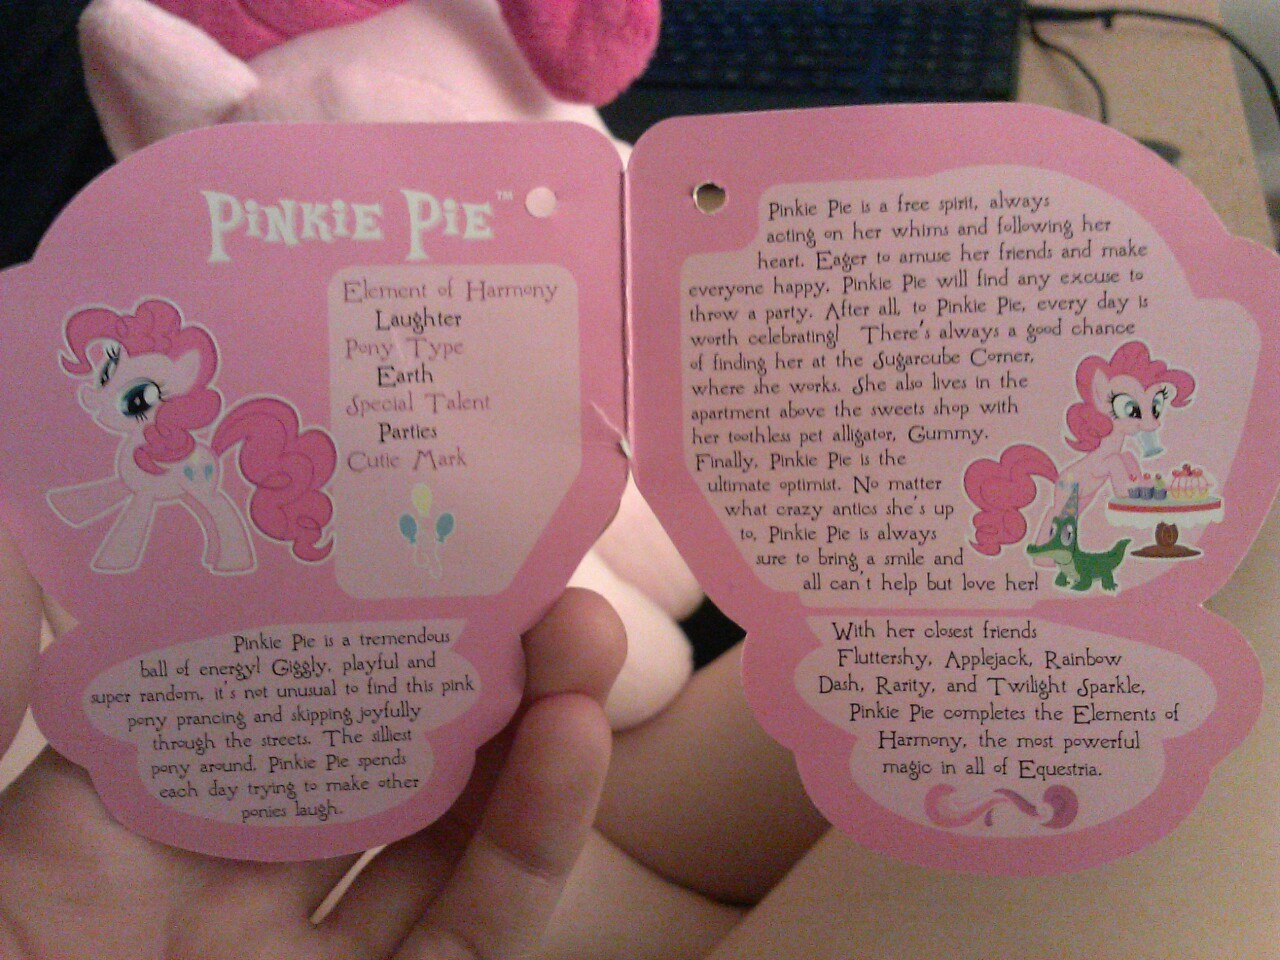 Pinkie Pie™
Element of Harmony
Laughter
Pony Type
Earth
Special Talent
Parties
Cutie Mark
Pinkie Pie is a tremendous
ball of energy! Giggly, playful and
super random, it's not unusual to find this pink
pony prancing and skipping joyfully
through the streets. The silliest
pony around, Pinkie Pie spends
each day trying to make other
ponies laugh.
Pinkie Pie is a free spirit, always
acting on her whims and following her
heart. Eager to amuse her friends and make
everyone happy, Pinkie Pie will find any excuse to
throw a party. After all, to Pinkie Pie, every day is
worth celebrating! There's always a good chance
of finding her at the Sugarcube Corner,
where she works. She also lives in the
apartment above the sweets shop with
her toothless pet alligator, Gummy.
Finally, Pinkie Pie is the
ultimate optimist. No matter
what crazy antics she's up
to, Pinkie Pie is always
sure to bring a smile and
all can't help but love her!
With her closest friends
Fluttershy, Applejack, Rainbow
Dash, Rarity, and Twilight Sparkle,
Pinkie Pie completes the Elements of
Harmony, the most powerful
magic in all of Equestria.